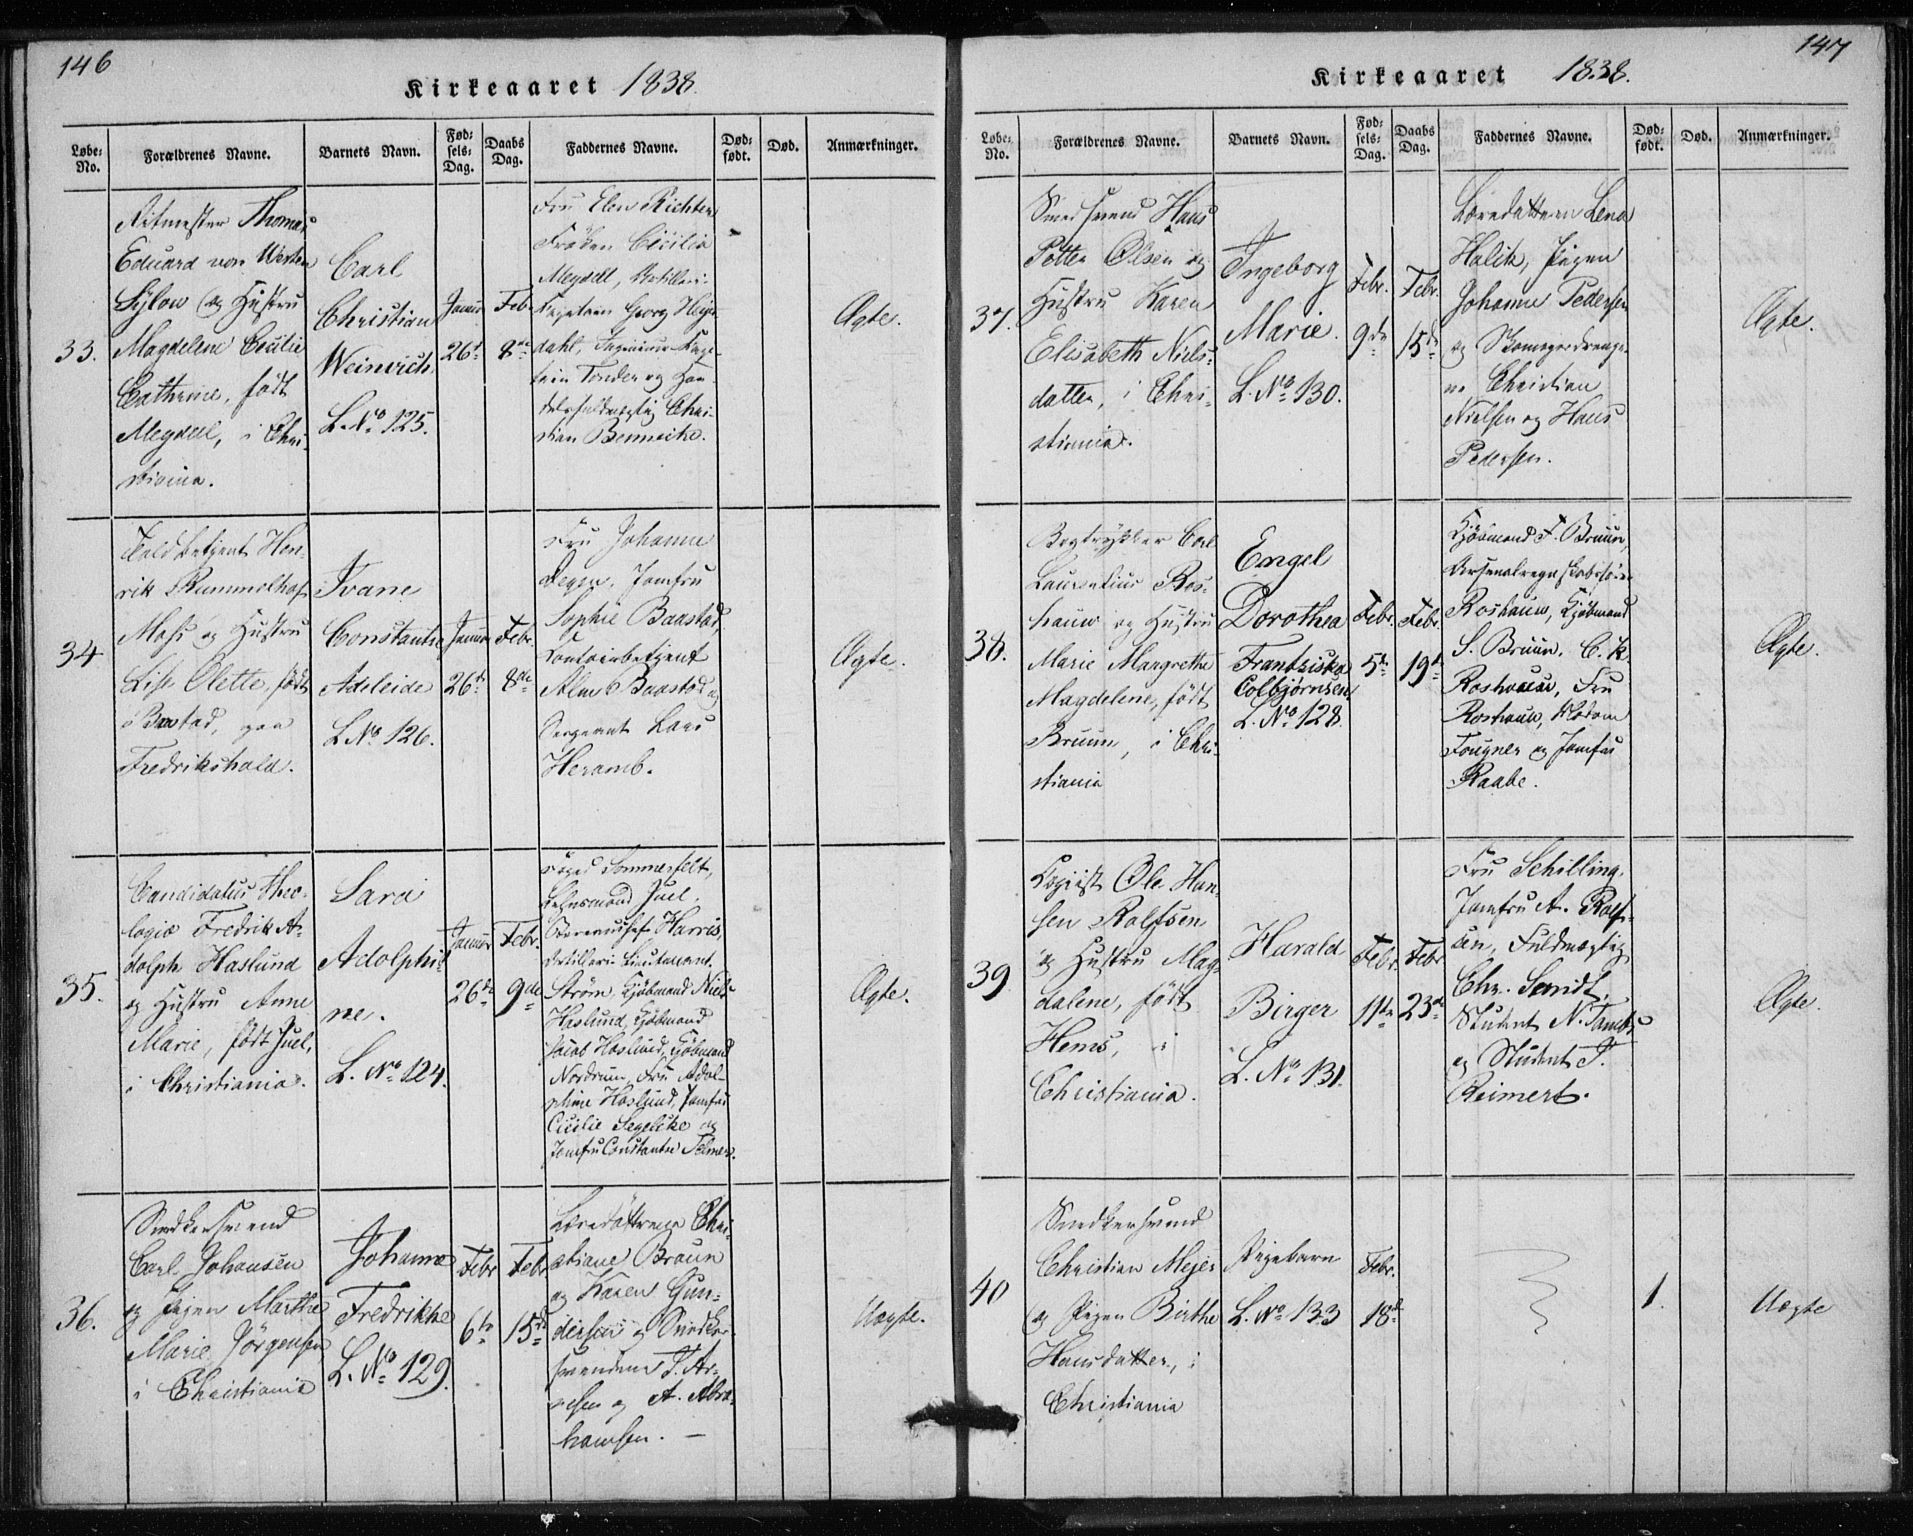 146
Kirkeaaret 1838
Løbe-No.
Forældrenes Navne.
Barnets Navn.
Fødsels-Dag.
Daabs Dag.
Faddernes Navne.
Dødfødt.
Død.
Anmærkninger.
33.
Ritmester Thomas
Eduard von Westen
Sylow og Hustru
Magdelene Cecilie
Cathrine, født
Meydell, i Chri-
stiania.
Carl
Christian
Weinrich
L. No 125.
Januar
26de
Feb.
8de
Fru Elen Richter
Frøken Cicilia
Meydell, Artilleri-
Capitain Georg Heyer
dahl, Ingenieur Kap-
tein Tonder og Han-
delsfuldmægtig Chri-
stian Benneche.
Ægte.
34
Toldbetjent Hen-
rik Rummelhof
Moss og Hustru
Lise Olette, født
Baastad, paa
Fredrikshald.
Ivane
Constantia
Adeleide
L No 126.
Januar
26de
Febr.
8de
Fru Johanne
Degen, Jomfru
Sophie Baastad,
Contoirbetjent
Alm Baastad og
Sergeant Lars
Heramb.
Ægte.
35.
Candidatus theo-
logiæ Fredrik A-
dolph Haslund
og Hustru Anne
Marie, født Juel,
i Christiania.
Sara
Adolphi-
ne.
L. No 124.
Januar
26de
Febr.
9de
Foged Sommerfelt,
Lehnsmand Juel,
Harris,
Artilleri Lieutenant
Strøm, Kjøbmand Niels
Haslund, Kjøbmand
Jacob Haslund, Kjøbmand
Nordrum, Fru Adol-
phine Haslund, Jomfru
Cicilie Segelcke og
Jomfru Constantse Telmer.
Ægte.
36.
Snedkersvend
Carl Johansen
og Pigen Marthe
Marie Jörgensen
i Christiania
Johanne
Fredrikke
L. No 129.
Febr
6te
Febr
15de
Læredøttrene Chri-
stiane Braun
og Karen Gun-
dersen og Snedker-
svendene T. Ar-
nesen og A. Abra-
hamsen. —
Uægte.
147
Kirkeaaret 1838.
Løbe-No.
Forældrenes Navne.
Barnets Navn.
Fødsels-Dag.
Daabs Dag.
Faddernes Navne.
Dødfødt.
Død.
Anmærkninger.
37.
Smedsvend Hans
Petter Olsen og
Hustru Karen
Elisabeth Niels-
datter, i Chri-
stiania.
Ingeborg
Marie.
L. No 130.
Febr.
9de
Febr.
15de
Læredatteren Lena
Halik, Pigen
Johanne Pedersen
og Skomagerdrenge-
ne Christian
Nielsen og Hans
Pedersen.
Ægte.
38.
Bogtrykker Carl
Laurentius Ros-
hauw og Hustru
Marie Margrethe
Magdelene, født
Bruun, i Chri-
stiania
Engel
Dorothea
Frantziska
Colbjørnsen
L. No 128.
Febr.
5te
Febr.
19de
Kjøbmand F. Bruun,
Arsenalregnskabsfører
Roshauw, Kjøbmand
S. Bruun, C. K.
Roshauw, Fru
Roshauw, Madam
Fougner og Jomfru
Raabe.
Ægte.
39
Copiist Ole Han-
sen Rolfsen
og Hustru Mag-
dalene, født
Hems, i
Christiania.
Harald
Birger
L. No 131.
Febr.
11te
Febr
23de
Fru Schilling,
Jomfru A. Rolf-
sen, Fuldmægtig
Chr. Sandt,
Student N. Tambs
og Student T.
Reimert.
Ægte.
40
Snedkersvend
Christian Mejer
og Pigen Birthe
Hansdatter, i
Christiania
Pigebarn
L. No 133
Febr.
18de
1.
Uægte